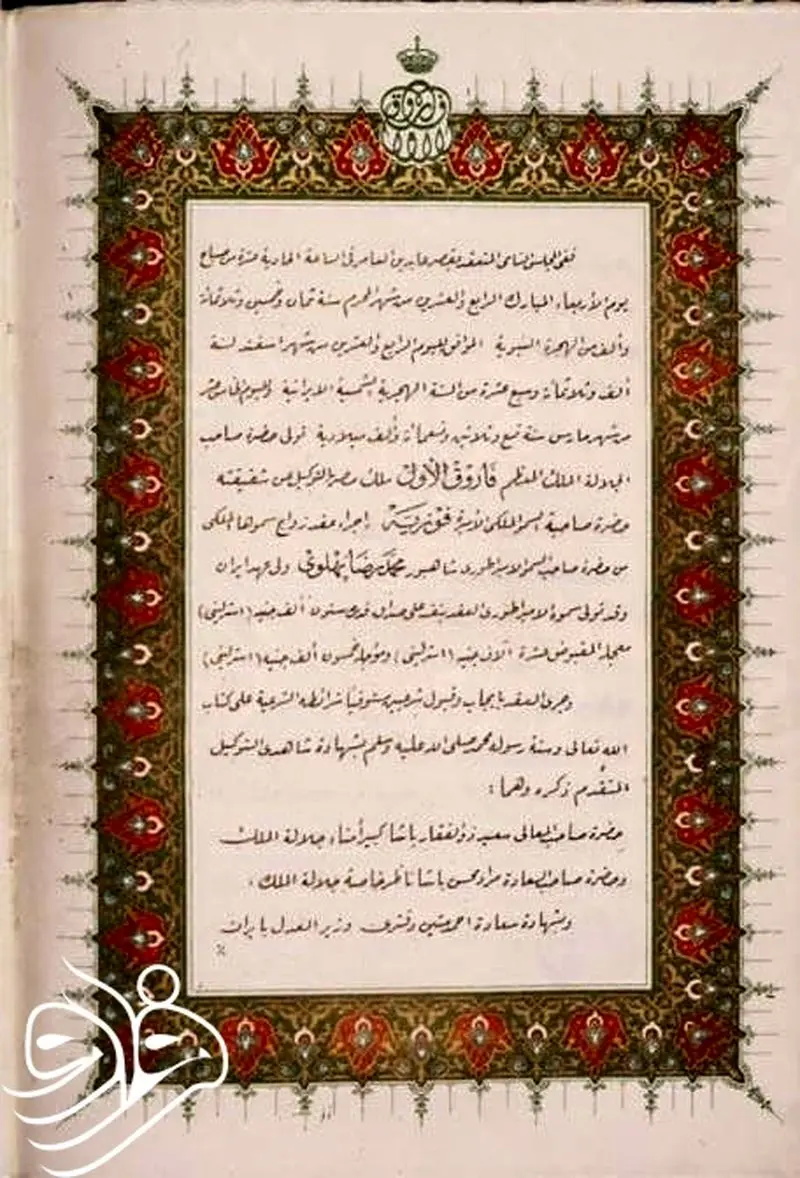 فاروق الأول
ففى المجلس السامى المنعقد بقصر عابدين العامر فى الساعة الحادية عشرة من صباح
يوم الأربعاء المبارك الرابع والعشرين من شهر المحرم سنة ثمان وخمسين وثلاثمائة
وألف من الهجرة النبوية الموافق لليوم الرابع والعشرين من شهر اسفند لسنة
ألف وثلاثمائة وسبع عشرة من السنة الهجرية الشمسية الايرانية ولليوم الخامس عشر
من شهر مارس سنة تسع وثلاثين وتسعمائة وألف ميلادية تولى حضرة صاحب
الجلالة الملك المعظم فاروق الأول ملك مصر بالتوكيل عن شقيقته
حضرة صاحبة السمو الملكى الأميرة فوزية إجراء عقد زواج سموها الملكى
من حضرة صاحب السمو الامبراطورى شاهبور محمد رضا پهلوي ولى عهد ايران
وقد تولى سموه الامبراطورى العقد بنفسه على صداق قدره ستون ألف جنيه (استرلينى)
معجله المقبوض عشرة آلاف جنيه (استرلينى) ومؤجله خمسون ألف جنيه (استرلينى)
وجرى العقد بايجاب وقبول شرعيين مستوفيا شرائطه الشرعية على كتاب
الله تعالى وسنة رسوله محمد صلى الله عليه وسلم بشهادة شاهدى التوكيل
المتقدم ذكره وهما :
حضرة صاحب المعالى سعيد ذو الفقار باشا كبير أمناء جلالة الملك
وحضرة صاحب السعادة مراد محسن باشا ناظر خاصة جلالة الملك ،
وبشهادة سعادة احمد متين دفترى وزير العدل بايران